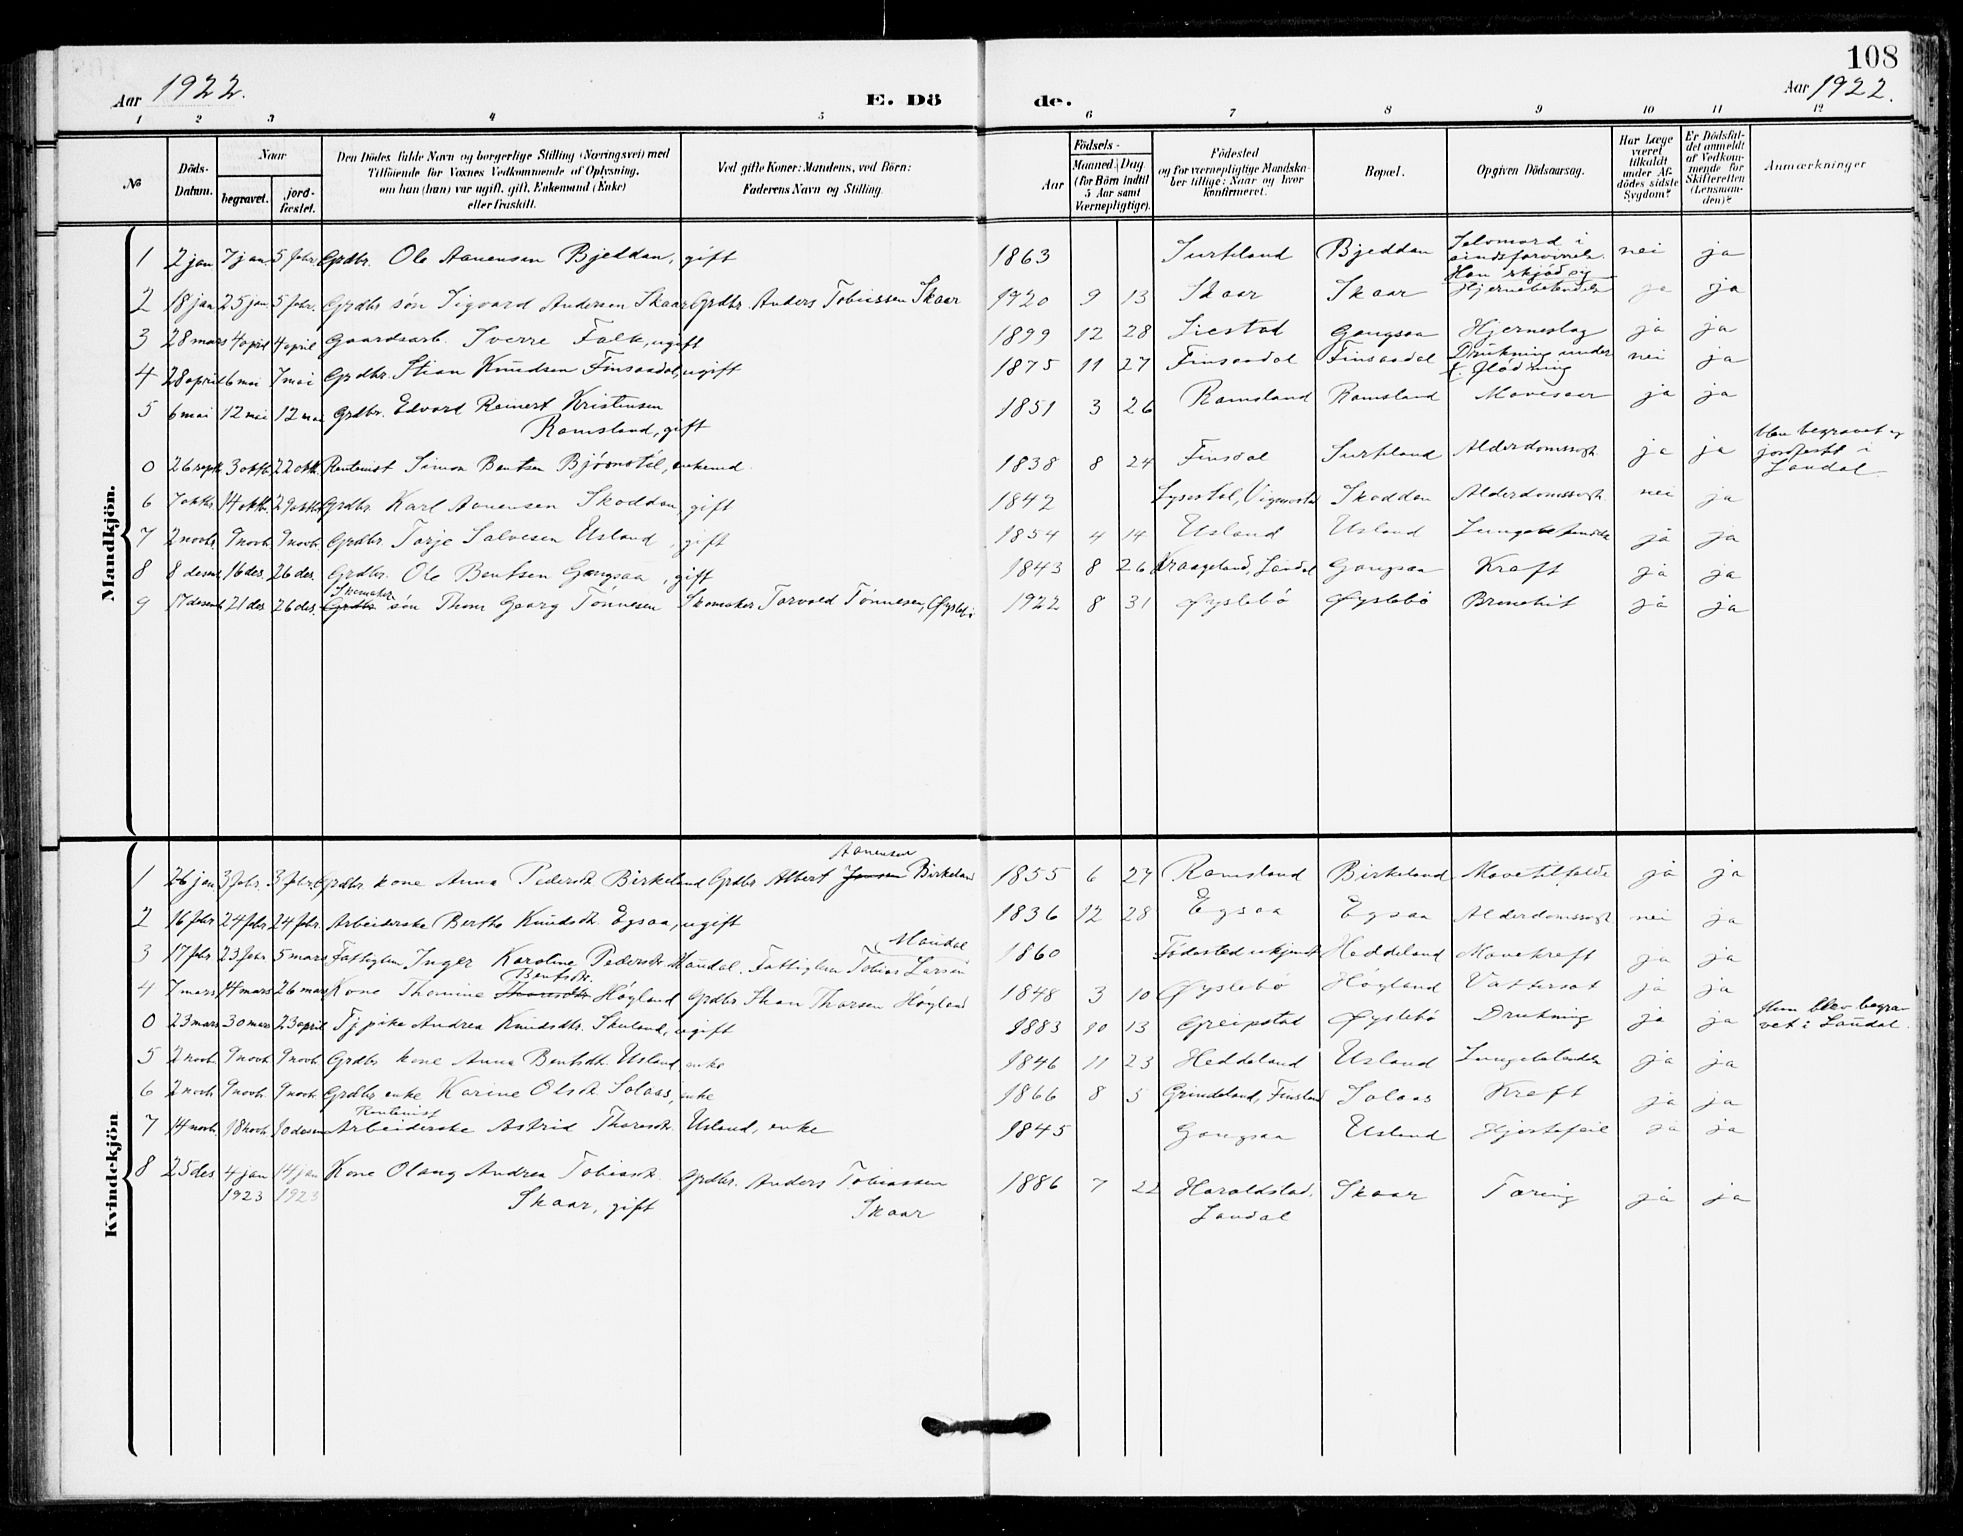 108
Aar 1922. E. Dö de. Aar 1922.
1 2 3 4 5 6 7 8 9 10 11 12
No
Döds-Datum.
Naar
begravet.
jord-fæstet.
Den Dödes fulde Navn og borgerlige Stilling (Næringsvei) med
Tilföiende for Voxnes Vedkommende af Oplysning,
om han (hun) var ugift, gift, Enkemand (Enke)
eller fraskilt.
Ved gifte Koner: Mandens, ved Börn:
Faderens Navn og Stilling.
Födsels-
Aar
Maaned. Dag
(for Börn indtil
5 Aar samt
Værnepligtige).
Födested
og for værnepligtige Mandska-
ber tillige: Naar og hvor
konfirmeret.
Bopæl.
Opgiven Dödsaarsag.
Har Læge
været
tilkaldt
under Af-
dödes sidste
Sygdom?
Er Dödsfal-
det anmeldt
af Vedkom-
mende for
Skifteretten
(Lensman-
den)?
Anmærkninger
Mandkjön.
1 2 jan 7 jan. 5 febr. Grdbr. Ole Aanensen Bjeddan, gift 1863 Surtland Bjeddan Selvmord i sindsforvirrels. Han skjød sig nei ja
2 18 jan 25 jan. 5 febr. Grdbr søn Sigvard Andersen Skaar Grdbr. Anders Tobiassen Skaar 1920 9 13 Skaar Skaar Hjernebetændelse ja ja
3 28 mars 4 april 4 april Gaardsarb. Sverre Falk, ugift 1899 12 28 Gangsaa Hjerneslag ja ja
4 28 april 6 mai 7 mai Grdbr. Stian Knudsen Finsaadal, ugift 1875 11 27 Finsaadal Finsaadal Drukning under flødning nei ja
5 6 mai 12 mai 12 mai Grdbr. Edvard Reinert Kristensen
Ramsland, gift 1851 3 26 Ramsland Ramsland Mavesaar ja ja
0 26 septb 3 oktb. 22 oktb. Rentenist Simon Bentsen Bjørnstøl, enkemd. 1838 8 24 Finsdal Surtland Alderdomssvgh ja ja blev begravet og jordfæstet i Laudal
6 7 oktbr. 14 oktb. 29 oktbr Grdbr. Karl Aanensen Skoddan, gift 1842 Vigmostad Skoddan Alderdomssvgh nei ja
7 2 novbr. 9 novb. 9 novb. Grdbr. Tarje Salvesen Usland, gift 1854 4 14 Usland Usland Lungebetændelse ja ja
8 8 desemb 16 des. 26 des. Grdbr. Ole Bentsen Gangsaa, gift 1843 8 26 Kraageland, Laudal Gangsaa Kræft ja ja
9 17 desemb 21 des 26 des. Skomaker Grdbr søn Thom Georg Tønnesen Skomaker Torvald Tønnesen, Øyslebø 1922 8 31 Øyslebø Øyslebø Bronchit ja ja
Kvindekjön
1 26 jan 3 febr. 3 febr. Grdbr. kone Anna Pedersdt. Birkeland Grdbr Albert Jensen Aanensen Birkeland 1855 6 27 Ramsland Birkeland Mavetilfælde ja ja
2 16 febr 24 febr 24 febr. Arbeiderske Berthe Knudsdt. Egsaa, ugift 1836 12 28 Egsaa Egsaa Alderdomssvgh nei ja
3 17 febr 23 febr 5 mars Fattiglem Inger Karoline Pedersdt. Mandal. Fattiglem Tobias Larsen Mandal 1860 Fødested ukjendt Heddeland Mavekræft ja ja
4 7 mars 14 mars 26 mars Kone Thomine Thorsdtr Bentsdtr. Høyland Grdbr Thorsen Høyland 1848 3 10 Øyslebø Høyland Vattersot ja ja
0 23 mars 30 mars 23 april Tj. pike Andrea Knudsdtr. ugift 1883 10 13 Greipstad Øyslebø Drukning ja ja Hun blev begravet i Laudal.
5 2 novb. 9 novb. 9 novb. Grdbr kone Anna Bentsdt. Usland enke 1846 11 23 Heddeland Usland Lungebetændelse ja ja
6 2 novb. 9 novb. 9 novb. Grdbr enke Karine Olsdt. Solaas, enke 1866 8 5 Grindeland, Finsland Solaas Kræft ja ja
7 14 novb. 18 novb. 10 desem Rentenist Arbeiderske Astrid Tharesdt. Usland, enke 1845 Gangsaa Usland Hjertefeil ja ja
8 25 des 4 jan 1923 14 jan 1923 Kone Olaug Andrea Tobiasdt.
Skaar, gift Grdbr. Anders Tobiassen Skaar 1886 7 22 Haraldstad, Laudal Skaar Tæring ja ja